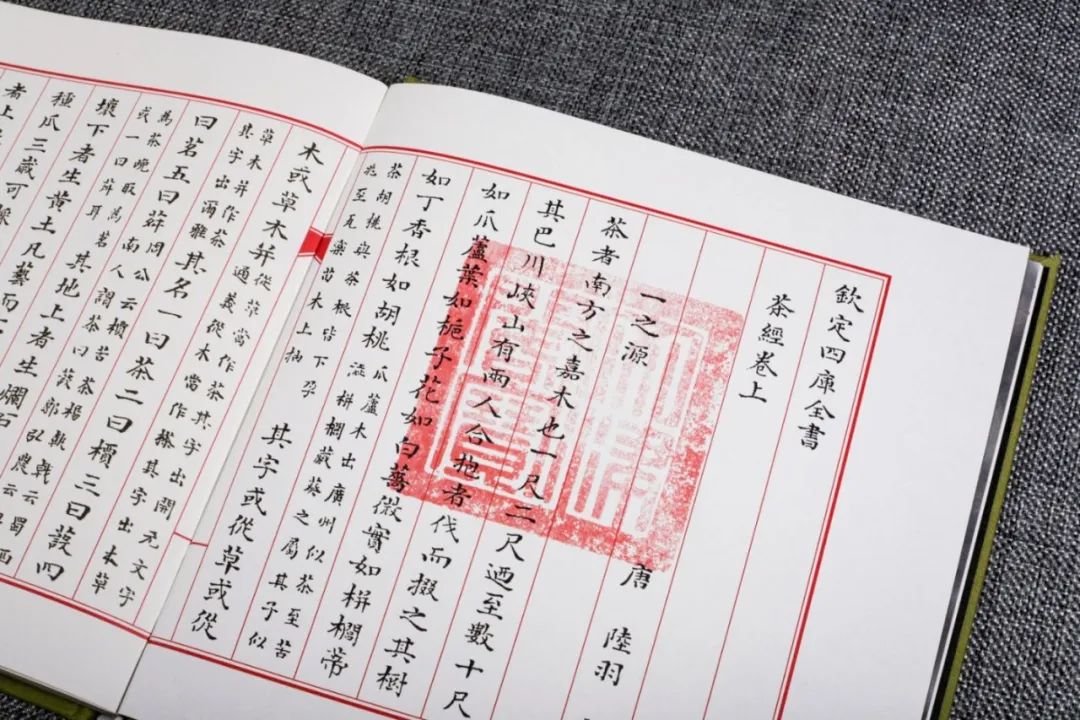 欽定四庫全書
茶經卷上
唐 陸羽
一之源
茶者南方之嘉木也一尺二尺迺至數十尺
其巴川峽山有兩人合抱者伐而掇之其樹
如瓜蘆葉如梔子花如白薔薇實如栟櫚蒂
如丁香根如胡桃
瓜蘆木出廣州似茶至苦
澁栟櫚蒲葵之屬其子似
茶胡桃與茶根皆下孕
兆至瓦礫苗木上抽
其字或從草或從
木或草木并
從草當作茶其字出開元文字
義從木當作㮈其字出本草
草木并作茶
其字出爾雅
其名一曰茶二曰檟三曰蔎四
曰茗五曰荈
周公云檟苦茶楊執戟云蜀西
南人謂茶曰蔎郭弘農云
為茶晚取為茗
或一曰荈耳
其地上者生爛石
壤下者生黃土凡藝而
種瓜三歲可採
者上